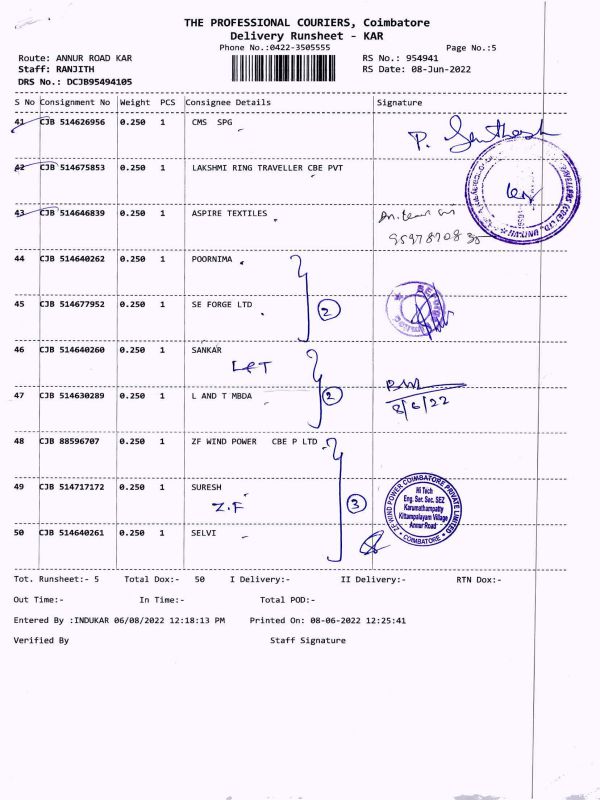 THE PROFESSIONAL COURIERS, Coimbatore
Delivery Runsheet - KAR
Phone No.:0422-3505555
Page No.:5
Route: ANNUR ROAD KAR
RS No.: 954941
Staff: RANJITH
RS Date: 08-Jun-2022
DRS No.: DCJB95494105
S No Consignment No Weight PCS Consignee Details Signature
41 CJB 514626956 0.250 1 CMS SPG
P. Santhosh
42 CJB 514675853 0.250 1 LAKSHMI RING TRAVELLER CBE PVT
43 CJB 514646839 0.250 1 ASPIRE TEXTILES
44 CJB 514640262 0.250 1 POORNIMA
45 CJB 514677952 0.250 1 SE FORGE LTD
2
46 CJB 514640260 0.250 1 SANKAR
L&T
47 CJB 514630289 0.250 1 L AND T MBDA
2
8/6/22
48 CJB 88596707 0.250 1 ZF WIND POWER CBE P LTD
49 CJB 514717172 0.250 1 SURESH
Z.F
3
ZF WIND POWER COIMBATORE PRIVATE LIMITED
Hi Tech
Eng. Ser. Sec. SEZ
Karumathampatty
Kittampalayam Village
Annur Road
* COIMBATORE *
50 CJB 514640261 0.250 1 SELVI
Tot. Runsheet:- 5 Total Dox:- 50 I Delivery:- II Delivery:- RTN Dox:-
Out Time:- In Time:- Total POD:-
Entered By :INDUKAR 06/08/2022 12:18:13 PM Printed On: 08-06-2022 12:25:41
Verified By Staff Signature